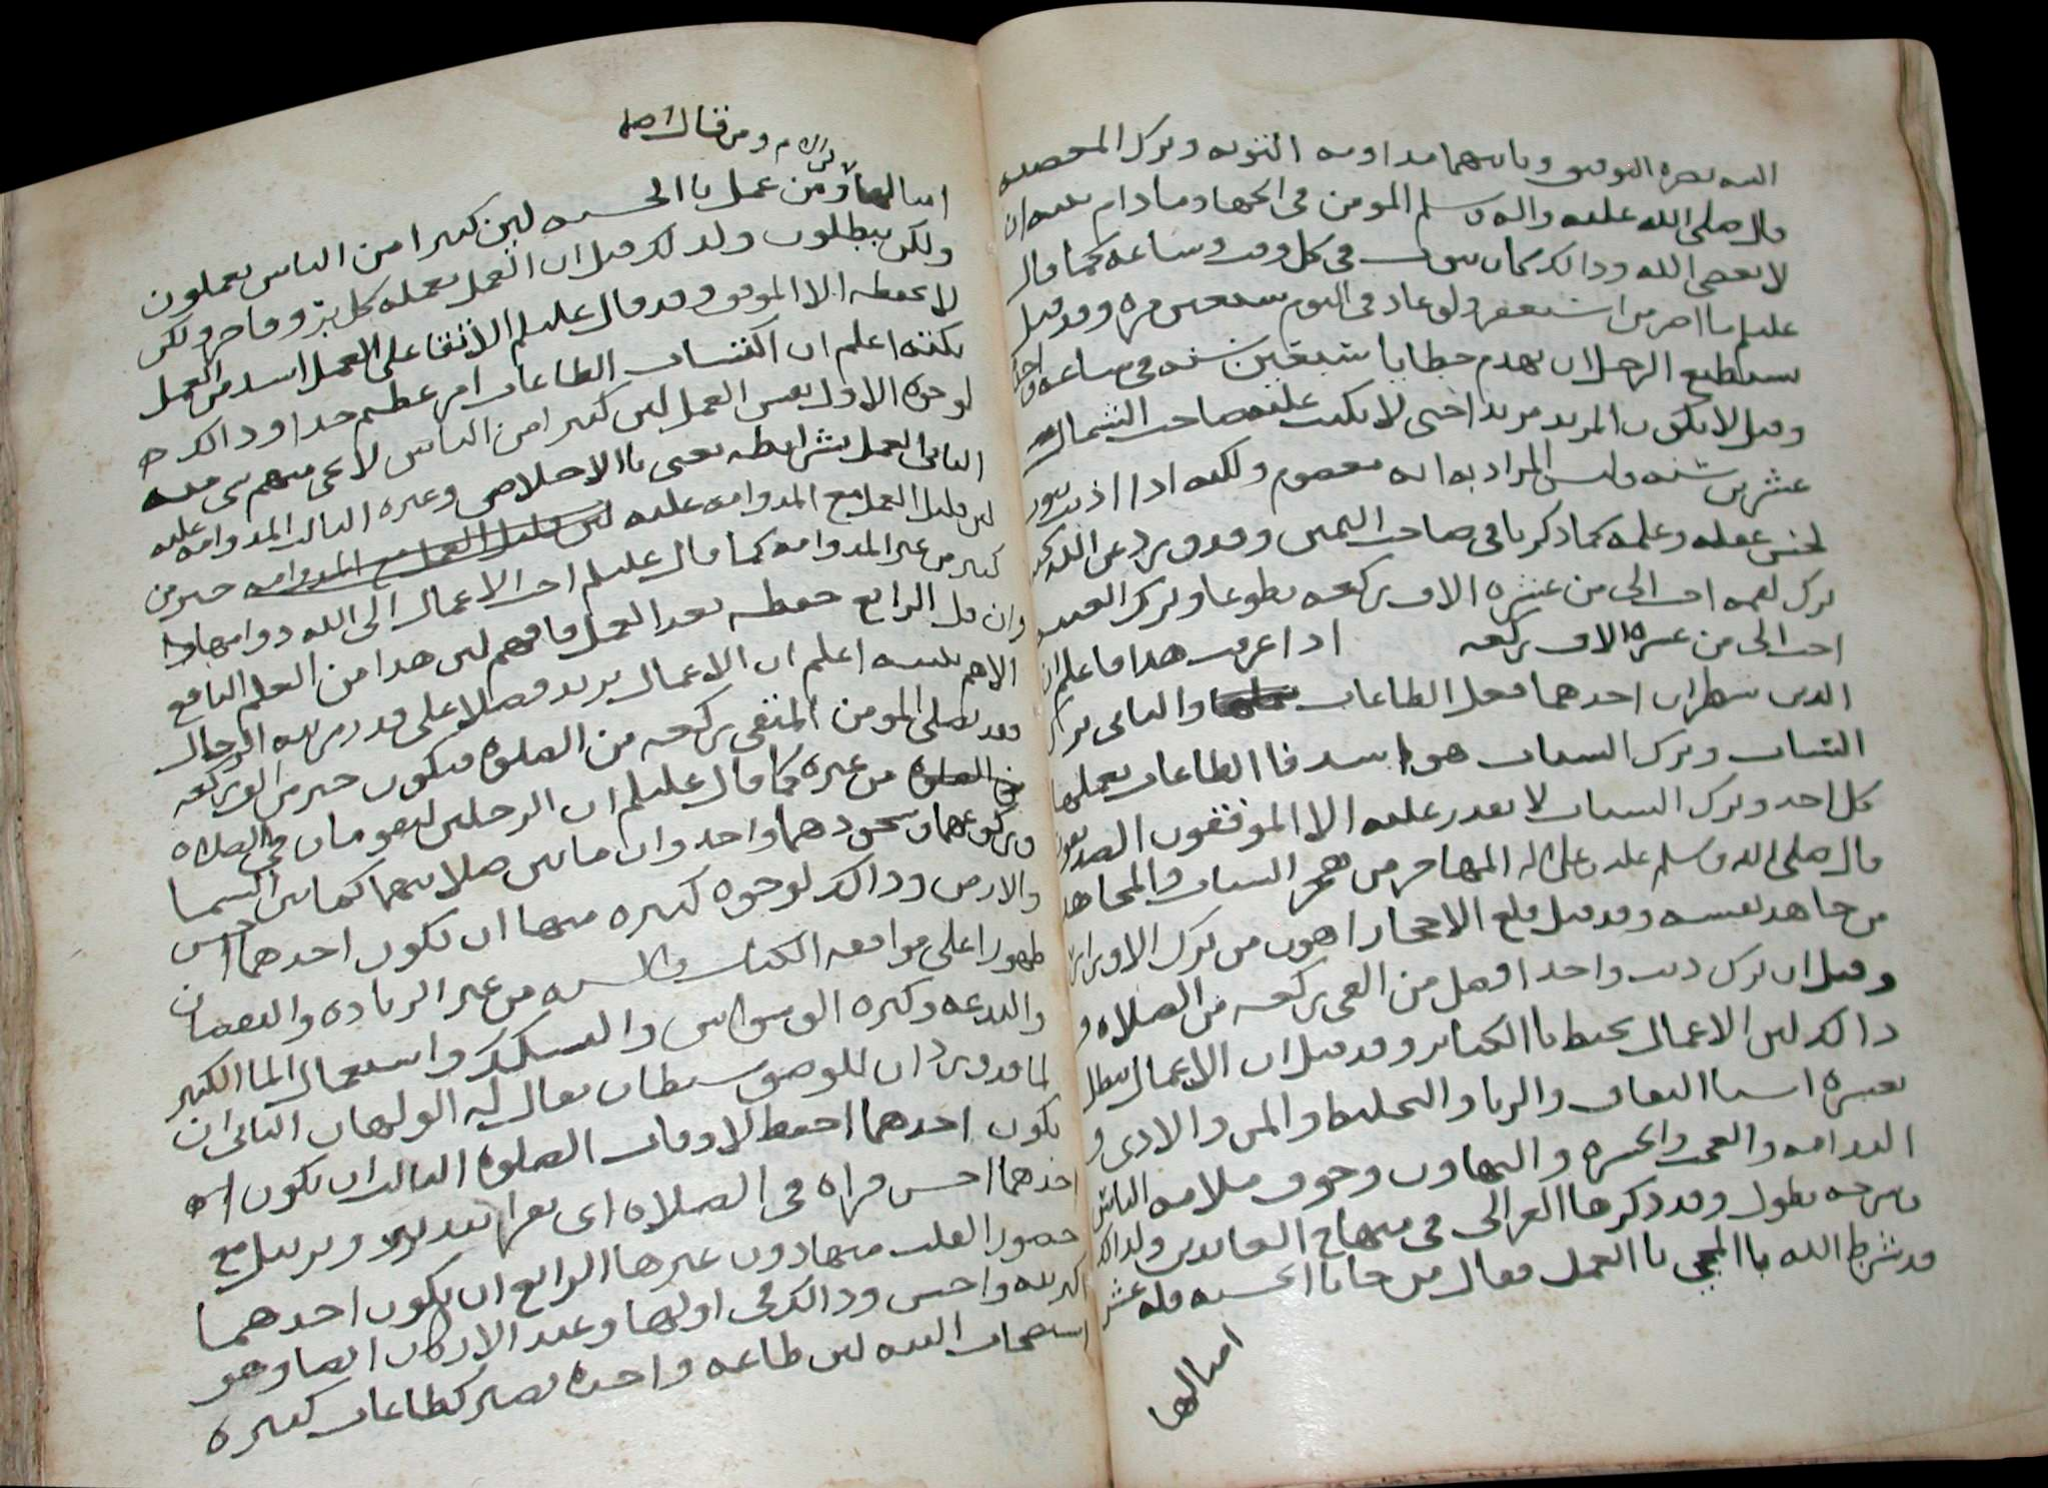 الله بصره التوفيق وثانيهما مداومه التوبه وترك المعصيه
قال صلى الله عليه واله وسلم المومن في الجهاد مادام نفسه ان
لا يعصي الله وذالك كان سوا في كل وقت وساعه كما قال
عليلم ما اصر من استغفر ولو عاد في اليوم سبعين مره وقد قيل
يستطيع الرجل ان يهدم خطايا سبعين سنه في ساعه واحده
وقيل لا يكون المريد مريدا حتى لا يكتب عليه صاحب الشمال
عشرين سنه وليس المراد به انه معصوم ولكنه اذا اذنب
لحسن عمله وعلمه كما ذكرنا في صاحب اليمين وقد ورد عن
ترك لقمه احب الي من عشره الاف ركعه تطوعا وترك الغيبه
احب الي من عشره الاف ركعه اذا عرفت هذا فاعلم ان
الدين شطران احدهما فعل الطاعات والثاني ترك
السيات وترك السيات هو اشد فا الطاعات يعملها
كل احد وترك السيات لا يقدر عليه الا الموفقون الصديقون
قال صلى الله وسلم عليه وعلى اله المهاجر من هجر السيات والمجاهد
من جاهد نفسه وقد قيل قلع الاحجار اهون من ترك الاوزار
وقيل ان ترك ذنب واحد افضل من الفي ركعه من الصلاه و
ذالك لين الاعمال تحبط با الكبائر وقد قيل ان الاعمال تبطل
بعشره اشيا النفاق والريا والتخليط والمن والاذى و
الندامه والعجب والحسره والتهاون وخوف ملامه الناس
وشرحه يطول وقد ذكرها الغزالي في منهاج العابدين ولذالك
قد شرط الله با المجي با العمل فقال من جا با الحسنه فله عشر
امثالها
ومن قال اصلا
امثالها ومن عمل با الحسنه لين كثيرا من الناس يعملون
ولكن يبطلون ولذلك قيل ان العمل يعمله كل بر وفاجر ولكن
لا يحفظه الا الموفق وقد قال عليلم الاتقا على العمل اشد من العمل
نكته اعلم ان اكتساب الطاعات امر عظيم جدا وذالك
لوجوه الاول نفس العمل لين كثيرا من الناس لا يجي منهم شي منه
الثاني العمل بشرايطه يعني با الاخلاص وغيره الثالث المداومه عليه
لين قليل العمل مع المداومه عليه لين قليل العمل مع المداومه خير من
كثير من غير المداومه كما قال عليلم احب الاعمال الى الله دوامها وا
وان قل الرابع حفظه بعد العمل فافهم لين هذا من العلم النافع
الاهم تنبيه اعلم ان الاعمال يزيد فضلا على قدر مرتبه الرجال
فقد يصلي المومن المتقي ركعه من الصلوة فيكون خير من الوف ركعه
من الصلوة من غيره كما قال عليلم ان الرجلين ليقومان في الصلاه
وركوعهما وسجودهما واحد وان ما بين صلاتيهما كما بين السما
والارض وذالك لوجوه كثيره منها ان يكون احدهما احسن
طهورا على موافقه الكتاب والسنه من غير الزياده والنقصان
والبدعه وكثره الوسواس والتشكك واستعمال الما الكثير
لما قد ورد ان للوضو شيطان يقال له الولهان الثاني ان
يكون احدهما احفظ لاوقات الصلوة الثالث ان يكون
احدهما احسن قراه في الصلاه اي يقرا بتدبر وترتيل مع
حضور القلب منها دون غيرها الرابع ان يكون احدهما
اكثر نيه واحسن وذالك في اولها وعند الاركان ايضا وهو
استصحاب النيه لين طاعه واحده تصير كطاعات كثيره